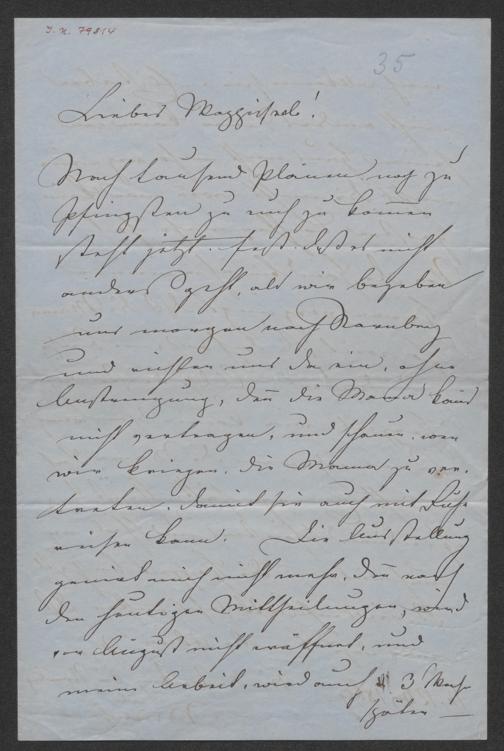 I. N. 79814
35
Liebes
Nach tausend Plänen noch zu
Pfingsten zu euch zu kom̅en
steht jetzt fest daß es nicht
anders geht, als wir begeben
uns morgen nach Starnberg
und richten uns da ein, ohne
Anstrengung, den̅ die Mama kan̅s
nicht vertragen, und schauen, wen
wir kriegen, die Mama zu ver-
treten, damit sie auch mit Ruhe
reisen kann. Die Ausstellung
genirt mich nicht mehr, den̅ nach
den heutigen Mittheilungen, wird
vor August nicht eröffnet, und
meine Arbeit, wird auch 3 Woch
später —